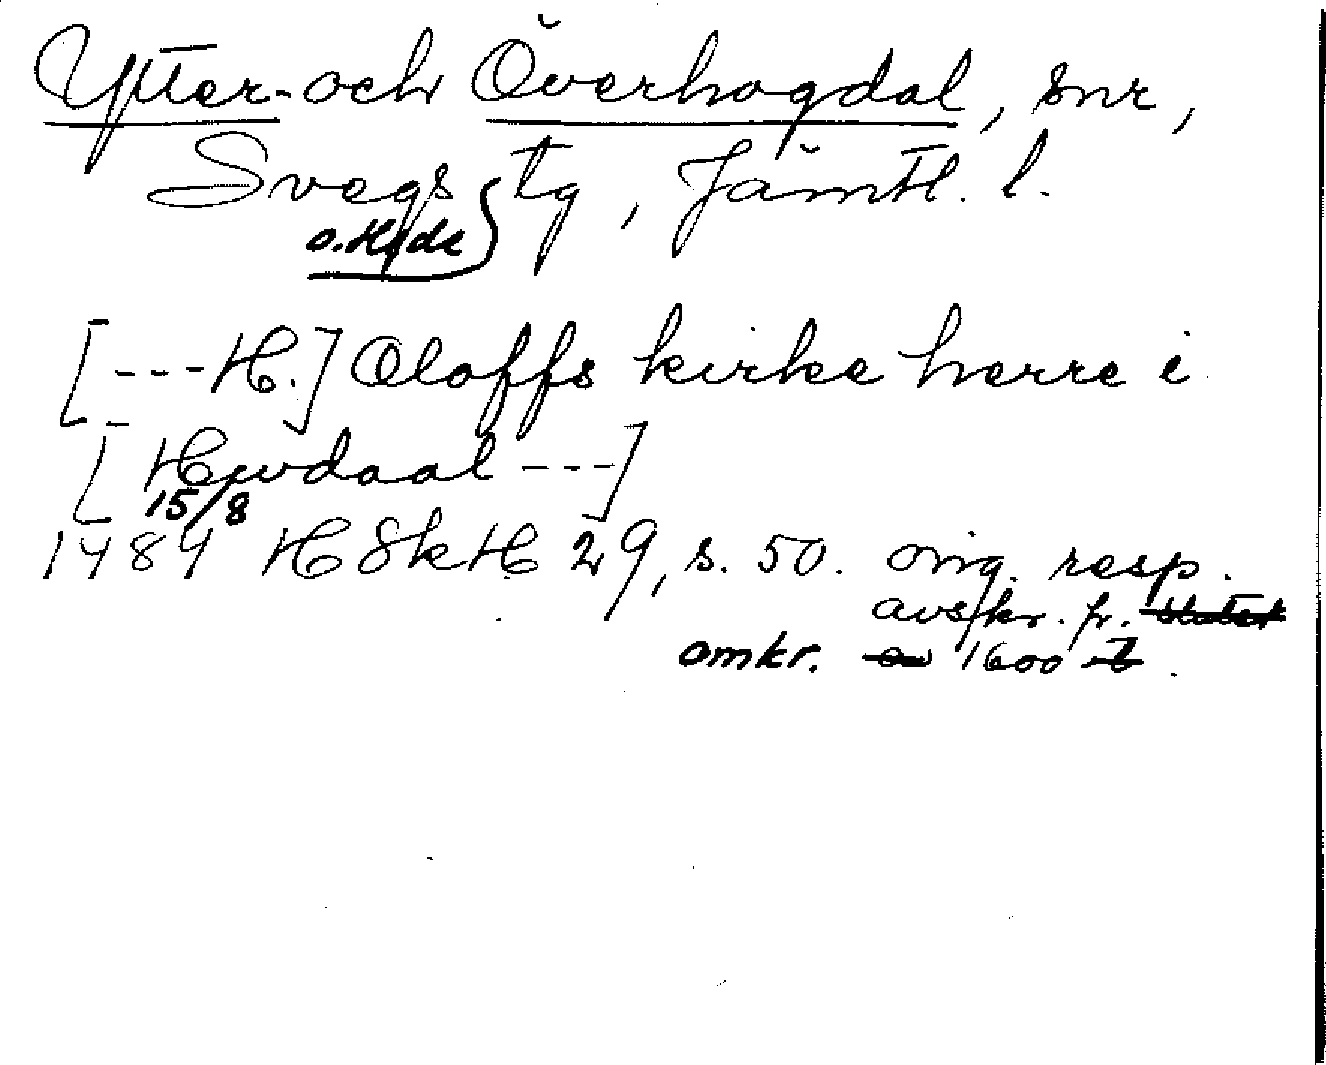 Ytter- och Överhogdal, snr,
Svegs tg, Jämtl. l.
o. Hede
[---H.] Oloffs kirke herre i
[Hwdaal---]
15/8
1484 HSkH 29, s. 50. orig. resp.
avskr. fr.
omkr. 1600